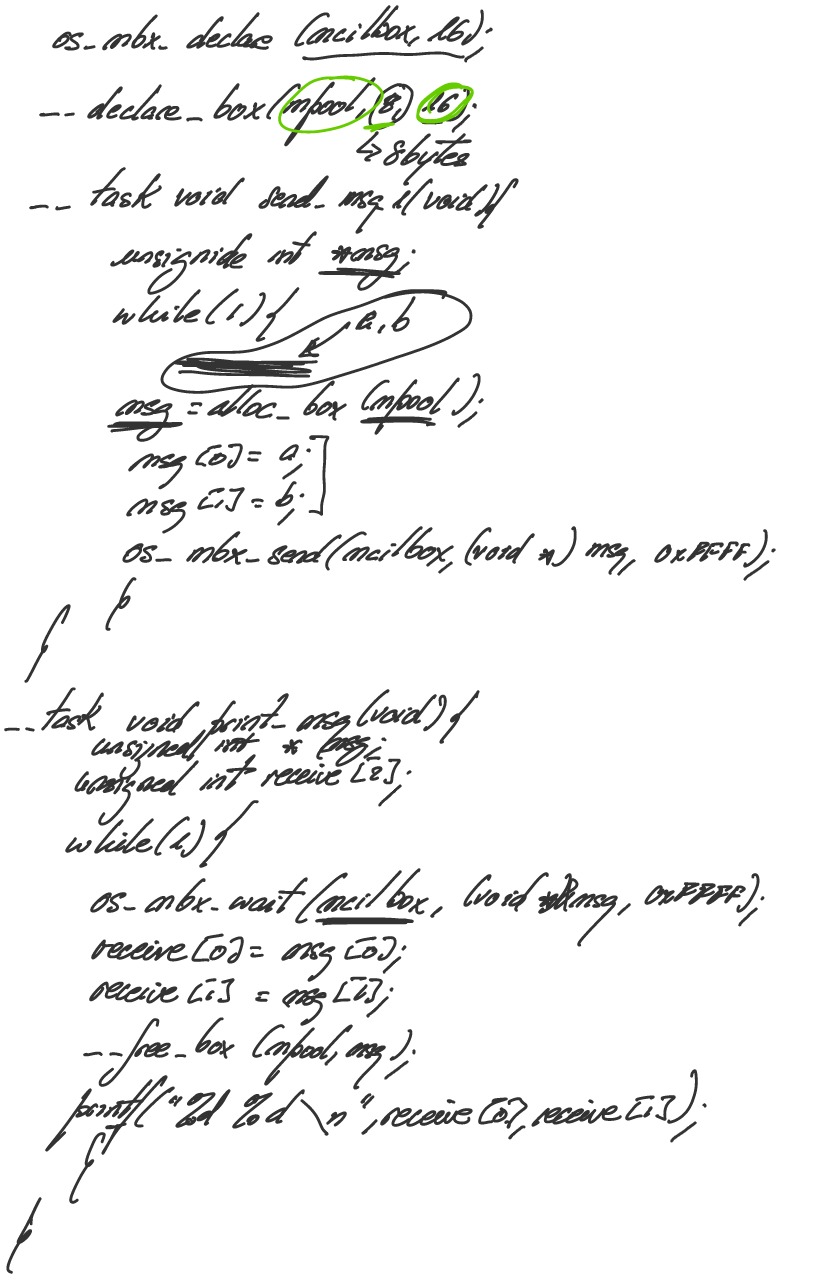 os_mbx_declare (mailbox, 16);
-- declare_box (mpool, 8, 16);
↳ 8 bytes
-- task void send_msg 1(void){
unsignide int *msg;
while(1){
a, b
msg = alloc_box (mpool);
msg [0] = a;
msg [1] = b;
os_mbx_send(mailbox, (void *) msg, 0xFFFF);
}
}
-- task void print_msg(void) {
unsigned int * msg;
unsigned int receive [2];
while(1){
os_mbx_wait (mailbox, (void **)&msg, 0xFFFF);
receive [0] = msg [0];
receive [1] = msg [1];
-- free_box (mpool, msg);
printf("%d %d \n", receive [0], receive [1]);
}
}